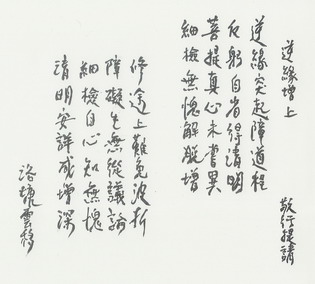 逆緣增上
敬行提請
逆緣突起障道程
反躬自省得清明
菩提真心未書異
細檢無愧解脫增
修途上難免波折
障礙生無從議論
細檢自心知無愧
清明安詳咸增深
洛杉雲移